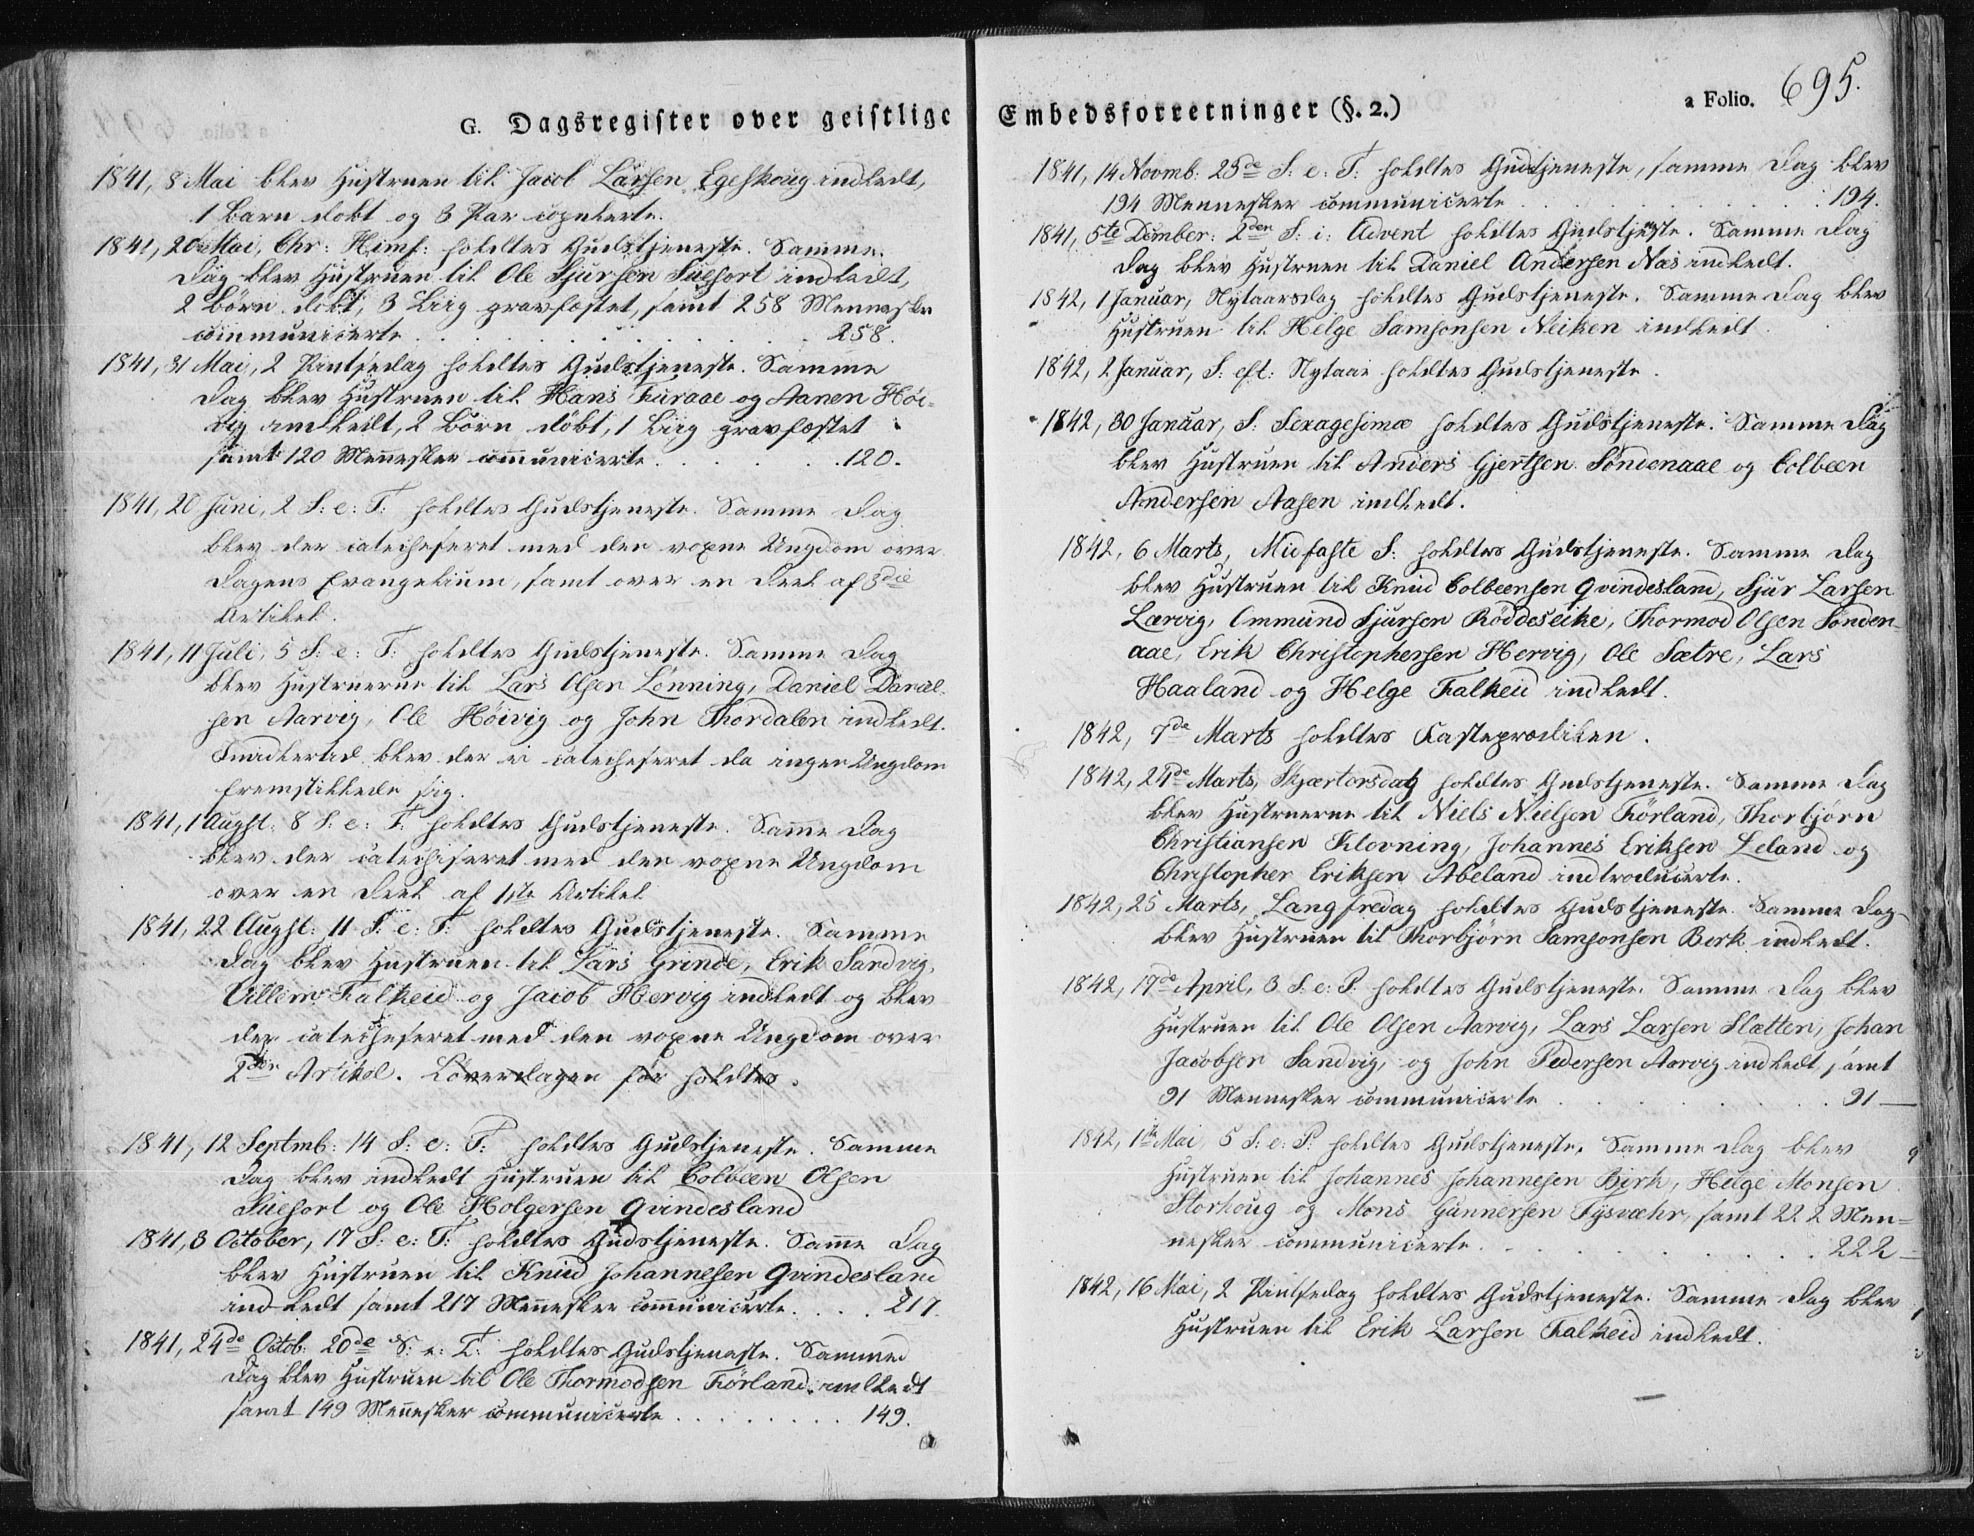 G. Dagsregister over geistlige
1841, 8 Mai blev Hustruen til Jacob Larsen Egeskoug indledt,
1 Barn døbt og 3 Par copulerte.
1841, 20 Mai, Chr: Himf: holdtes Gudstjeneste. Samme
Dag blev Hustruen til Ole Sjursen indledt,
2 Börn döbt, 3 Liig gravfæstet, samt 258 Mennesker
communicerte . . . 258.
1841, 31 Mai, 2 Pintsedag holdtes Gudstjeneste. Samme
Dag blev Hustruen til Hans Furaae og Aanen Höi-
vig indledt, 2 Börn döbt, 1 Liig gravfæstet
samt 120 Mennesker communicerte . . . 120.
1841, 20 Juni, 2 S: e: T: holdtes Gudstjeneste. Samme Dag
blev der catecheseret med den voxne Ungdom over
Dagens Evangelium, samt over en Deel af 3die
Artikel.
1841, 11 Juli, 5 S: e: T: holdtes Gudstjeneste. Samme Dag
blev Hustruerne til Lars Olsen Lönning, Daniel Daniel-
sen Aarvig, Ole Höivig og John Thordalen indledt.
Imidlertid blev der ei catecheseret da ingen Ungdom
fremstillede sig.
1841, 1 Augst: 8 S: e: T: holdtes Gudstjeneste. Samme Dag
blev der catechiseret med den voxne Ungdom
over en Deel af 1ste Artikel
1841, 22 Augst: 11 S: e: T: holdtes Gudstjeneste. Samme
Dag blev Hustruen til Lars Grinde, Erik Sandvig,
Villem Falkeid og Jacob Hervig indledt og blev
der catecheseret med den voxne Ungdom over
2den Artikel. Löverdagen för holdtes.
1841, 12 Septmb: 14 S: e: T: holdtes Gudstjeneste. Samme
Dag blev indledt Hustruen til Colbeen Olsen
og Ole Holgersen Qvindesland
1841, 3 October, 17 S: e: T: holdtes Gudstjeneste. Samme Dag
blev Hustruen til Knud Johannesen Qvindesland
indledt samt 217 Mennesker communicerte . . . 217.
1841, 24de Octob: 20de S: e: T: holdtes Gudstjeneste. Samme
Dag blev Hustruen til Ole Thormodsen Förland indledt
samt 149 Mennesker communicerte . . . 149.
Embedsforretninger (§. 2.)
a Folio. 695.
1841, 14 Novmb: 23de S: e: T: holdtes Gudstjeneste, samme Dag blev
194 Mennesker communicerte . . . 194.
1841, 5te Dcmber: 2den S: i: Advent holdtes Gudstjeneste. Samme Dag
Dag blev Hustruen til Daniel Andersen Næs indledt.
1842, 1 Januar, Nytaarsdag holdtes Gudstjeneste. Samme Dag blev
Hustruen til Helge Samsonsen Neiken indledt.
1842, 2 Januar, S: eft: Nytaar holdtes Gudstjeneste.
1842, 30 Januar, S: Sexagesimæ holdtes Gudstjeneste. Samme Dag
blev Hustruen til Anders Gjertsen Söndenaae og Colbeen
Andersen Aasen indledt.
1842, 6 Marts, Midfaste S: holdtes Gudstjeneste. Samme Dag
blev Hustruen til Knud Colbeensen Qvindesland, Sjur Larsen
Lærvig, Ommund Sjursen Röddeseike, Thormod Olsen Sönden-
aae, Erik Christophersen Hervig, Ole Sætre, Lars
Haaland og Helge Falkeid indledt.
1842, 7de Marts holdtes Fasteprædiken.
1842, 24de Marts, Skjærtorsdag holdtes Gudstjeneste. Samme Dag
blev Hustruerne til Niels Nielsen Förland, Thorbjörn
Christiansen Klovning, Johannes Eriksen Leland og
Christopher Eriksen Abeland indtroducerte.
1842, 25 Marts, Langfredag holdtes Gudstjeneste. Samme Dag
blev Hustruen til Thorbjörn Samsonsen Berk indledt.
1842, 17de April, 3 S: e: P. holdtes Gudstjeneste. Samme Dag blev
Hustruen til Ole Olsen Aarvig, Lars Larsen Slætten, Johan
Jacobsen Sandvig, og John Pedersen Aarvig indledt, samt
91 Mennesker communicerte . . . 91 —
1842, 1te Mai, 5 S: e: P. holdtes Gudstjeneste. Samme Dag blev
Hustruen til Johannes Johannesen Birk, Helge Monsen
Storhoug og Mons Gunnersen Tysvæhr, samt 222 Men-
nesker communicerte . . . 222 —
1842, 16 Mai, 2 Pintsedag holdtes Gudstjeneste. Samme Dag blev
Hustruen til Erik Larsen Falkeid indledt.